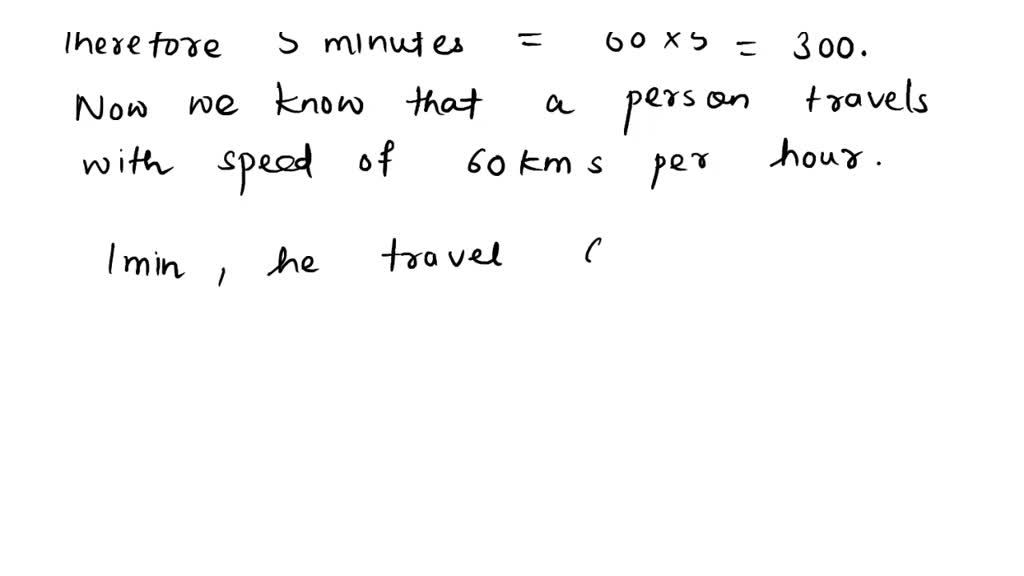 Therefore 5 minutes = 60 x 5 = 300.
Now we know that a person travels
with speed of 60 kms per hour.
1min, he travel (